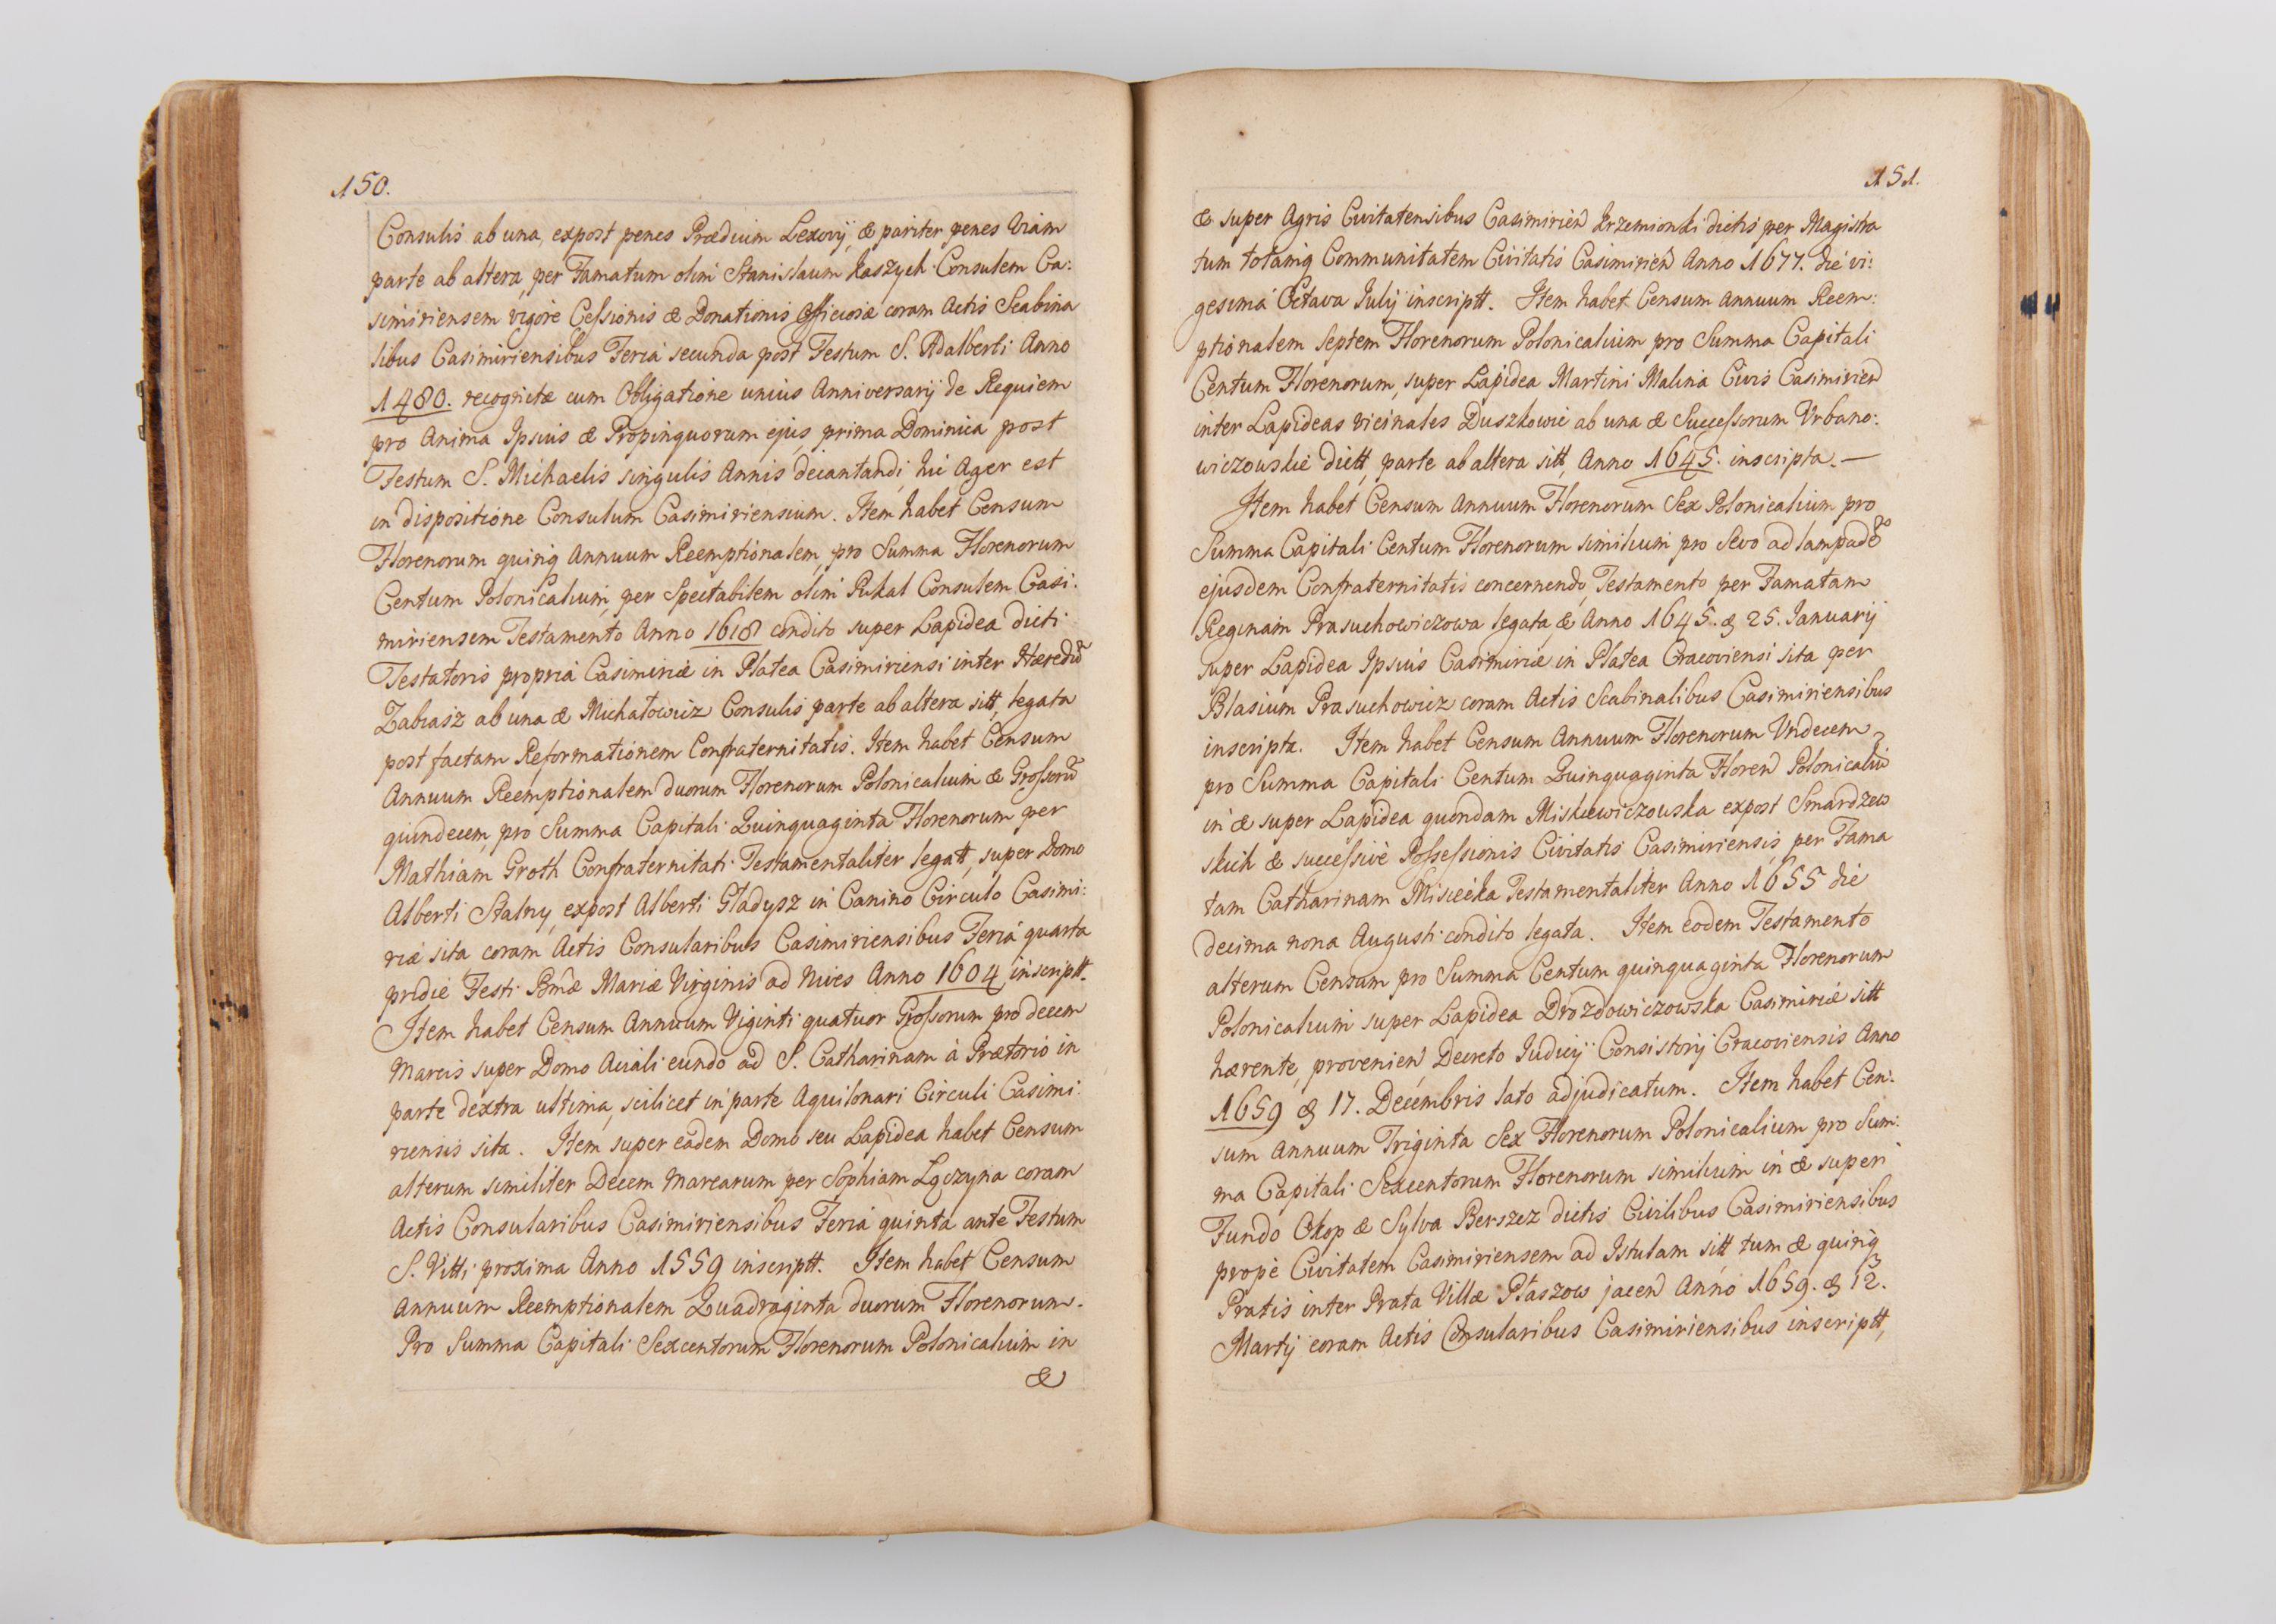 150.
Consulis ab una, expost penes Prædium Lexovij, & pariter penes Viam
parte ab altera, per Famatum olim Stanislaum Kaszych Consulem Ca:
simiriensem vigore Cessionis & Donationis Officiosæ coram Actis Scabina
libus Casimiriensibus Feria secunda post Festum S. Adalberti Anno
1480. recognitæ cum Obligatione unius Anniversarij de Requiem
pro Anima Ipsius & Propinquorum ejus, prima Dominica post
Festum S. Michaelis singulis Annis decantandi, hic Ager est
in dispositione Consulum Casimiriensium. Item habet Censum
Florenorum quinq Annuum Reemptionalem, pro Summa Florenorum
Centum Polonicalium, per Spectabilem olim Pukal Consulem Casi:
miriensem Testamento Anno 1618 condito super Lapidea dicti
Testatoris propria Casimiriæ in Platea Casimiriensi inter Hæredũ
Zabiasz ab una & Michałowicz Consulis parte ab altera sitt, legata
post factam Reformationem Confraternitatis. Item habet Censum
Annuum Reemptionalem duorum Florenorum Polonicalium & Grossorũ
quindecem, pro Summa Capitali Quinquaginta Florenorum per
Mathiam Groth Confraternitati Testamentaliter legatt, super Domo
Alberti Stalny, expost Alberti Gładysz in Canino Circulo Casimi:
riæ sita coram Actis Consularibus Casimiriensibus Feria quarta
pridie Festi Bmæ Mariæ Virginis ad Nives Anno 1604 inscriptt.
Item habet Censum Annuum Viginti quatuor Grossorum pro decem
Marcis super Domo Aciali eundo ad S. Catharinam à Prætorio in
parte dextra ultima, scilicet in parte Aquilonari Circuli Casimi:
riensis sita. Item super eadem Domo seu Lapidea habet Censum
alterum similiter Decem Marcarum per Sophiam Lączyna coram
Actis Consularibus Casimiriensibus Feria quinta ante Festum
S. Vitti proxima Anno 1559 inscriptt. Item habet Censum
Annuum Reemptionalem Quadraginta duorum Florenorum.
Pro Summa Capitali Sexcentorum Florenorum Polonicalium in
&
151.
& super Agris Civitatensibus Casimirien Krzemionki dictis per Magistra
tum totamq Communitatem Civitatis Casimirien Anno 1677. die vi:
gesima Octava Julij inscriptt. Item habet Censum Annuum Reem:
ptionalem Septem Florenorum Polonicalium pro Summa Capitali
Centum Florenorum, super Lapidea Martini Malina Civis Casimirien
inter Lapideas vicinales Duszkowic ab una & Successorum Urbano:
wiczowskie dictt, parte ab altera sitt, Anno 1645. inscripta.—
Item habet Censum Annuum Florenorum Sex Polonicalium pro
Summa Capitali Centum Florenorum similium pro Sevo ad lampades
ejusdem Confraternitatis concernendo, Testamento per Famatam
Reginam Prasuchowiczowa legata, & Anno 1645. & 25. Januarij
super Lapidea Ipsius Casimiriæ in Platea Cracoviensi sita per
Blasium Prasuchowicz coram Actis Scabinalibus Casimiriensibus
inscripta. Item habet Censum Annuum Florenorum Undecem
pro Summa Capitali Centum Quinquaginta Floren Polonicaliũ
in & super Lapidea quondam Miskiewiczowska expost Smardzew
skich & successivè Possessionis Civitatis Casimiriensis, per Fama
tam Catharinam Misiecka Testamentaliter Anno 1655 die
decima nona Augusti condito legata. Item eodem Testamento
alterum Censum pro Summa Centum quinquaginta Florenorum
Polonicalium super Lapidea Drozdowiczowska Casimiriæ sitt
hærente, provenien, Decreto Judicij Consistorij Cracoviensis Anno
1659 & 17. Decembris lato adjudicatum. Item habet Cen:
sum Annuum Triginta Sex Florenorum Polonicalium pro Sum:
ma Capitali Sexcentorum Florenorum similium in & super
Fundo Okop & Sylva Berszez dictis Civilibus Casimiriensibus
propè Civitatem Casimiriensem ad Istulam sitt, tum & quinq
Pratis inter Prata Villæ Płaszow jacen Anno 1659. & 12.
Martij coram Actis Consularibus Casimiriensibus inscriptt,